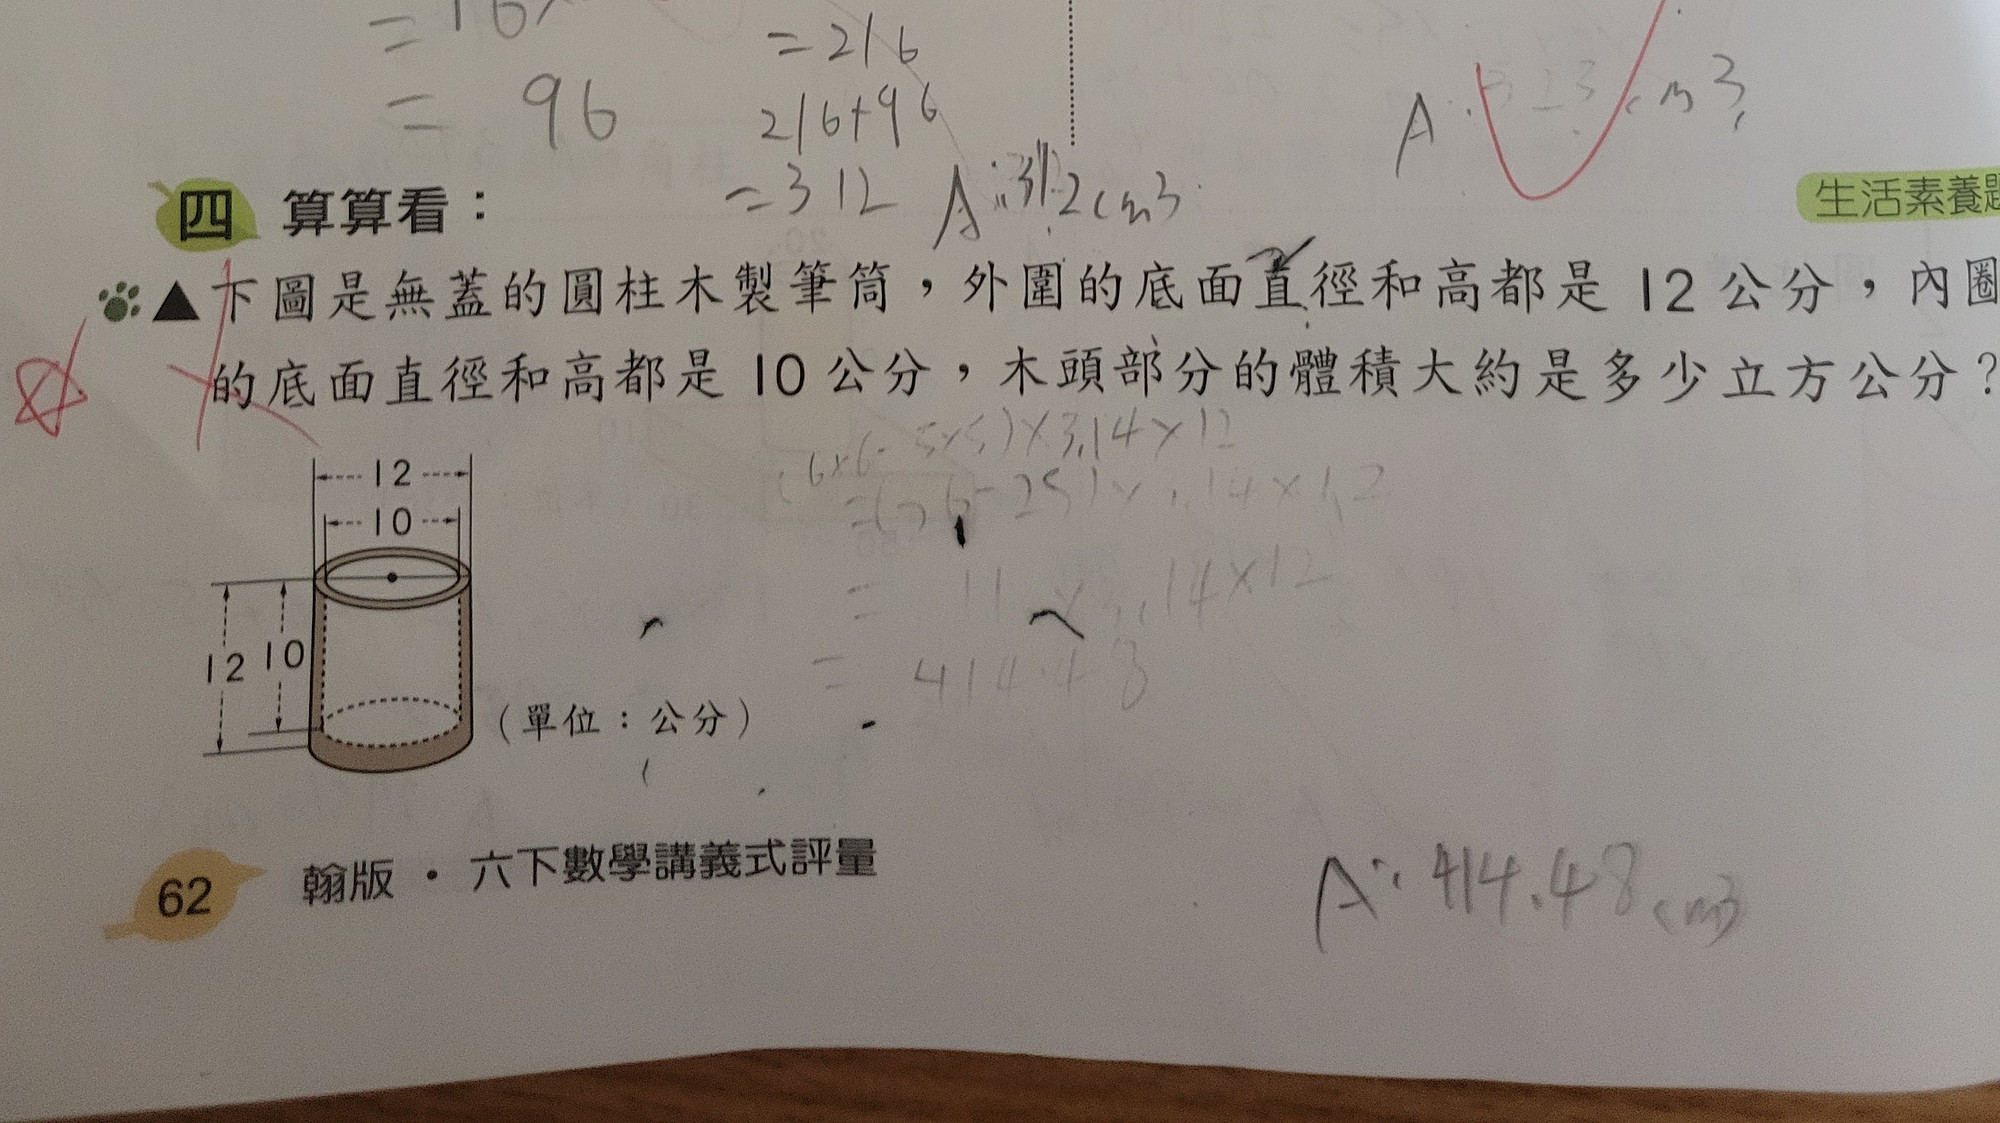 = 16×
= 96
= 216
216+96
= 312 A:312cm3
A: 323cm3
四 算算看：
生活素養題
▲下圖是無蓋的圓柱木製筆筒，外圍的底面直徑和高都是12公分，內圈
的底面直徑和高都是10公分，木頭部分的體積大約是多少立方公分？
(6×6-5×5)×3.14×12
=(36-25)×3.14×12
= 11×3.14×12
= 414.48
12
10
12 10
(單位：公分)
A:414.48cm3
62 翰版・六下數學講義式評量